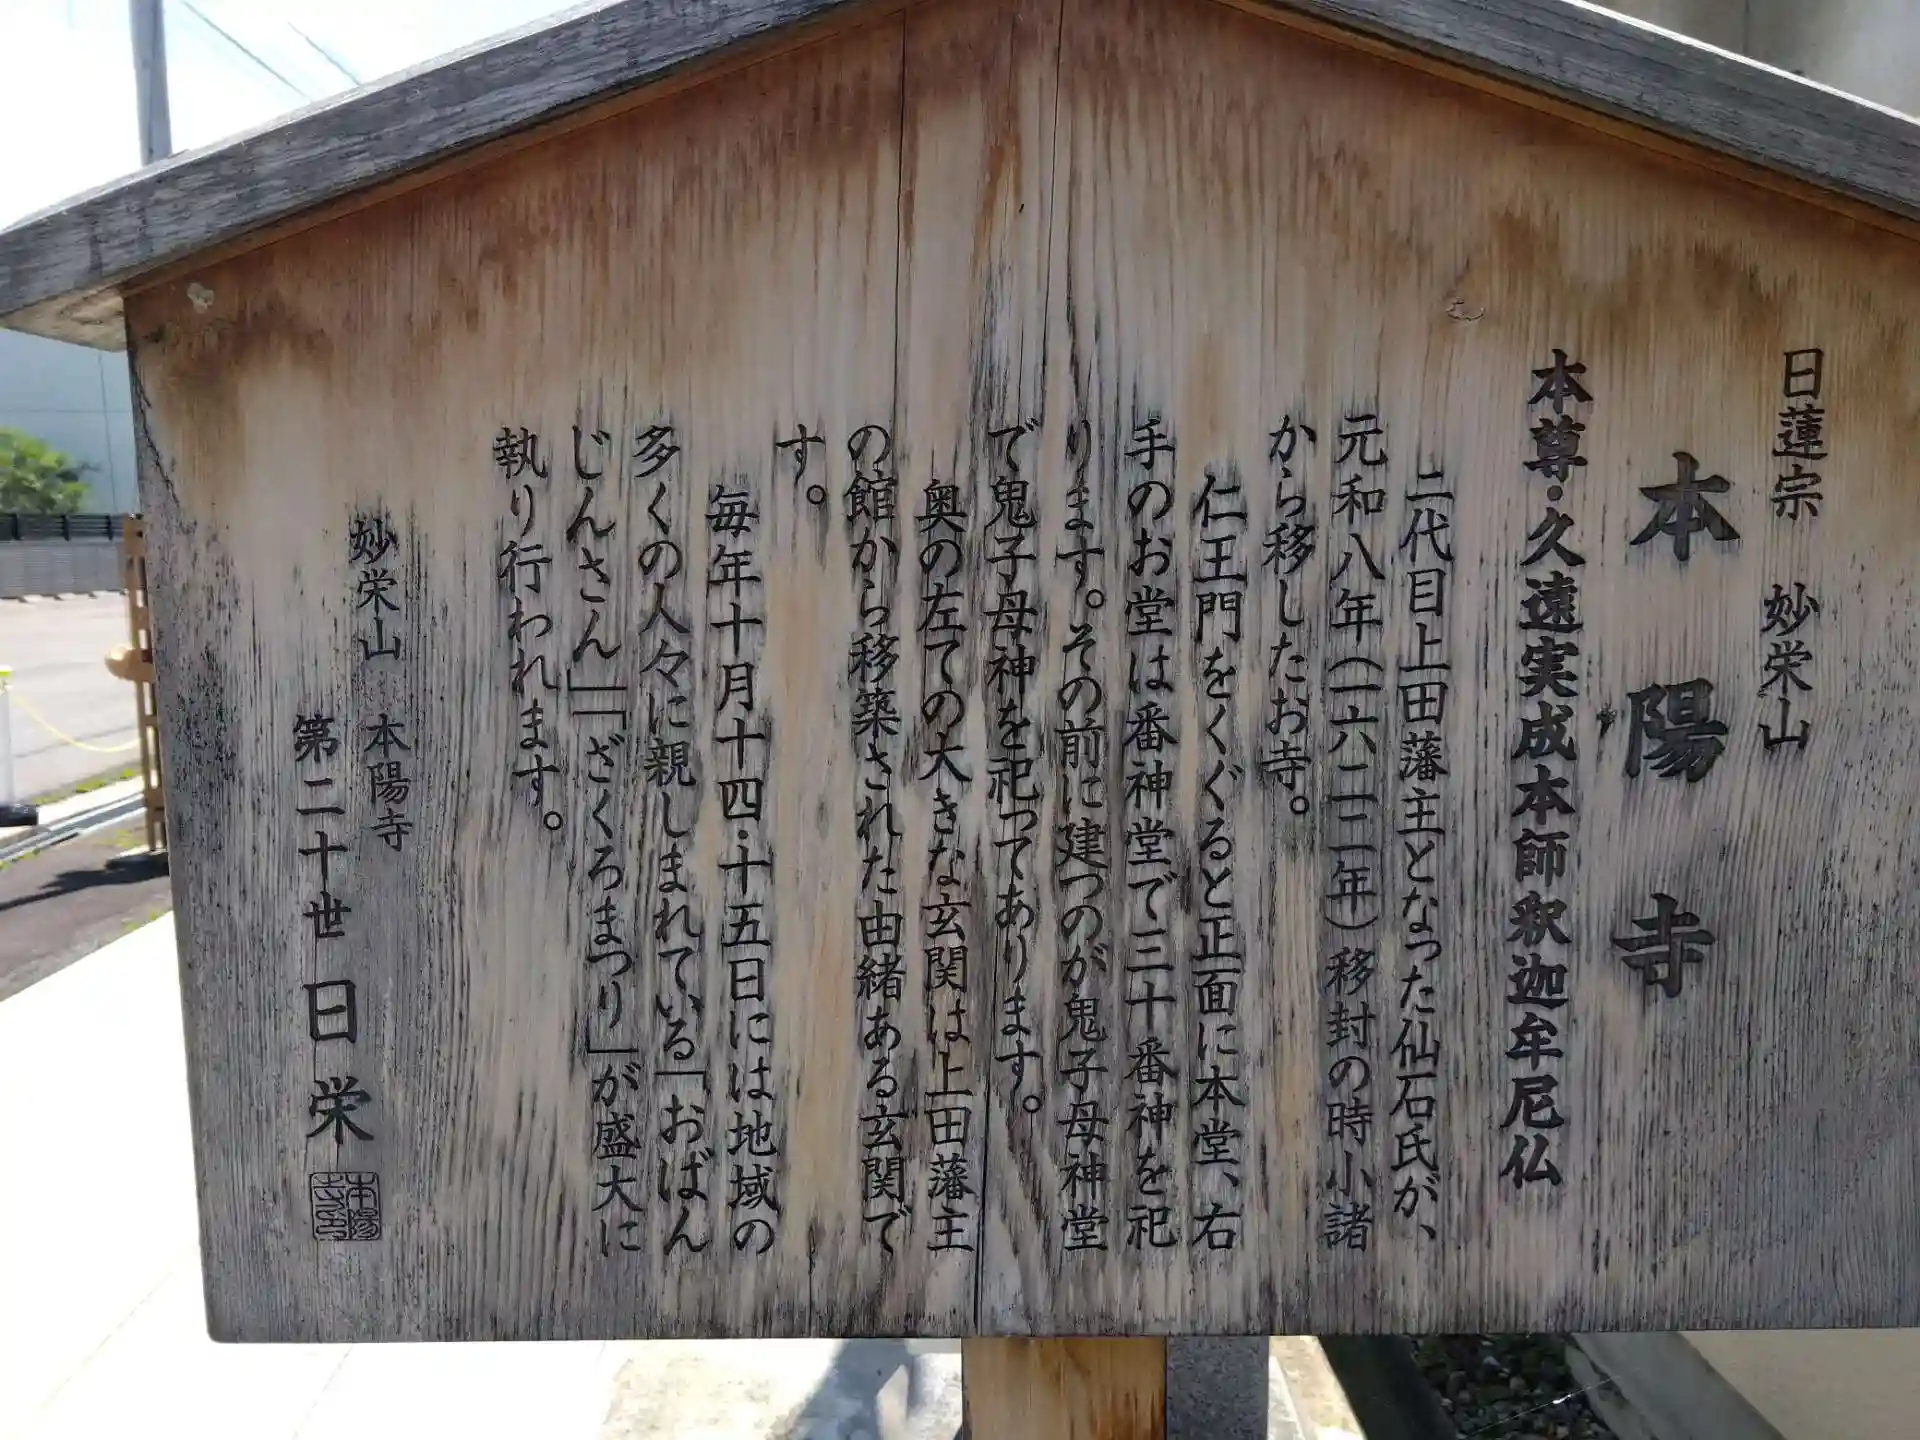 日蓮宗 妙栄山
本陽寺
本尊・久遠実成本師釈迦牟尼仏
二代目上田藩主となった仙石氏が、
元和八年(一六二二年)移封の時小諸
から移したお寺。
仁王門をくぐると正面に本堂、右
手のお堂は番神堂で三十番神を祀
ります。その前に建つのが鬼子母神堂
で鬼子母神を祀ってあります。
奥の左ての大きな玄関は上田藩主
の館から移築された由緒ある玄関で
す。
毎年十月十四・十五日には地域の
多くの人々に親しまれている「おばん
じんさん」「ざくろまつり」が盛大に
執り行われます。
妙栄山 本陽寺
第二十世 日栄
本陽
寺印